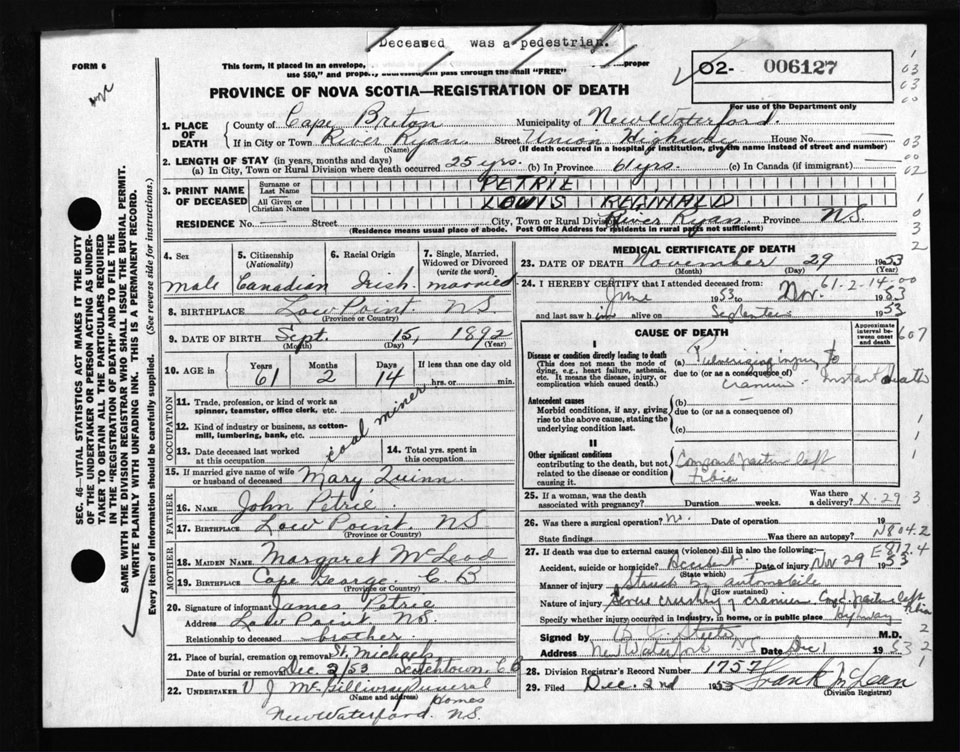 Deceased was a pedestrian.
FORM 6
This form, if placed in an envelope,
use $50," and
pass through the mail "FREE"
proper
O2- 006127
For use of the Department only
PROVINCE OF NOVA SCOTIA—REGISTRATION OF DEATH
1. PLACE OF DEATH
County of Cape Breton Municipality of New Waterford.
If in City or Town River Ryan. Street Union Highway House No.
(Name) (If death occurred in a hospital or institution, give the name instead of street and number)
2. LENGTH OF STAY (in years, months and days)
(a) In City, Town or Rural Division where death occurred 25 yrs. (b) In Province 61 yrs. (c) In Canada (if immigrant)
3. PRINT NAME OF DECEASED
Surname or Last Name PETRIE
All Given or Christian Names LOUIS REGINALD
RESIDENCE No. Street City, Town or Rural Division River Ryan. Province N.S.
(Residence means usual place of abode. Post Office Address for residents in rural parts not sufficient)
4. Sex male
5. Citizenship (Nationality) Canadian
6. Racial Origin Irish.
7. Single, Married, Widowed or Divorced (write the word) married
8. BIRTHPLACE Low Point. N.S.
(Province or Country)
9. DATE OF BIRTH Sept. 15, 1892
(Month) (Day) (Year)
10. AGE Years 61 Months 2 Days 14 If less than one day old
hrs. or min.
OCCUPATION
11. Trade, profession, or kind of work as spinner, teamster, office clerk, etc.
coal miner
12. Kind of industry or business, as cotton-mill, lumbering, bank, etc.
13. Date deceased last worked at this occupation
14. Total yrs. spent in this occupation
15. If married give name of wife or husband of deceased Mary Quinn
FATHER
16. NAME John Petrie.
17. BIRTHPLACE Low Point. N.S
(Province or Country)
MOTHER
18. MAIDEN NAME Margaret McLeod
19. BIRTHPLACE Cape George. C.B
(Province or Country)
20. Signature of informant James Petrie
Address Low Point N.S.
Relationship to deceased brother.
21. Place of burial, cremation or removal St. Michaels
Date of burial or removal Dec. 2/53 C.B
22. UNDERTAKER V J McGillivray Funeral Homes
(Name and address)
New Waterford. N.S.
MEDICAL CERTIFICATE OF DEATH
23. DATE OF DEATH November 29 1953
(Month) (Day) (Year)
61-2-14-00
24. I HEREBY CERTIFY that I attended deceased from:
June 1953 to Nov. 1953
and last saw him alive on 1953
CAUSE OF DEATH
Approximate interval between onset and death
607
I
Disease or condition directly leading to death
(This does not mean the mode of dying, e.g.: heart failure, asthenia, etc. It means the disease, injury, or complication which caused death.)
(a) Pulverizing injury to
due to (or as a consequence of)
cranium. Instant death
Antecedent causes
Morbid conditions, if any, giving rise to the above cause, stating the underlying condition last.
(b)
due to (or as a consequence of)
(c)
II
Other significant conditions
contributing to the death, but not related to the disease or condition causing it.
left
Tibia
25. If a woman, was the death associated with pregnancy? Duration weeks. Was there a delivery? X-29 3
26. Was there a surgical operation? No. Date of operation 19
State findings Was there an autopsy? N804.2
27. If death was due to external causes (violence) fill in also the following:— E812.4
Accident, suicide or homicide? Accident. Date of injury Nov 29 1953
(State which)
Manner of injury Struck by automobile
(How sustained)
Nature of injury Severe crushing of cranium left tibia
Specify whether injury occurred in industry, in home, or in public place highway
Signed by M.D.
Address New Waterford NS Date Dec 1 1953
28. Division Registrar's Record Number 1757
29. Filed Dec. 2nd 1953 Frank McLean
(Division Registrar)
SEC. 46—VITAL STATISTICS ACT MAKES IT THE DUTY
OF THE UNDERTAKER OR PERSON ACTING AS UNDERTAKER
TO OBTAIN ALL THE PARTICULARS REQUIRED
IN THE "REGISTRATION OF DEATH" AND TO FILE THE
SAME WITH THE DIVISION REGISTRAR WHO SHALL ISSUE THE BURIAL PERMIT.
WRITE PLAINLY WITH UNFADING INK. THIS IS A PERMANENT RECORD.
Every item of information should be carefully supplied. (See reverse side for instructions.)